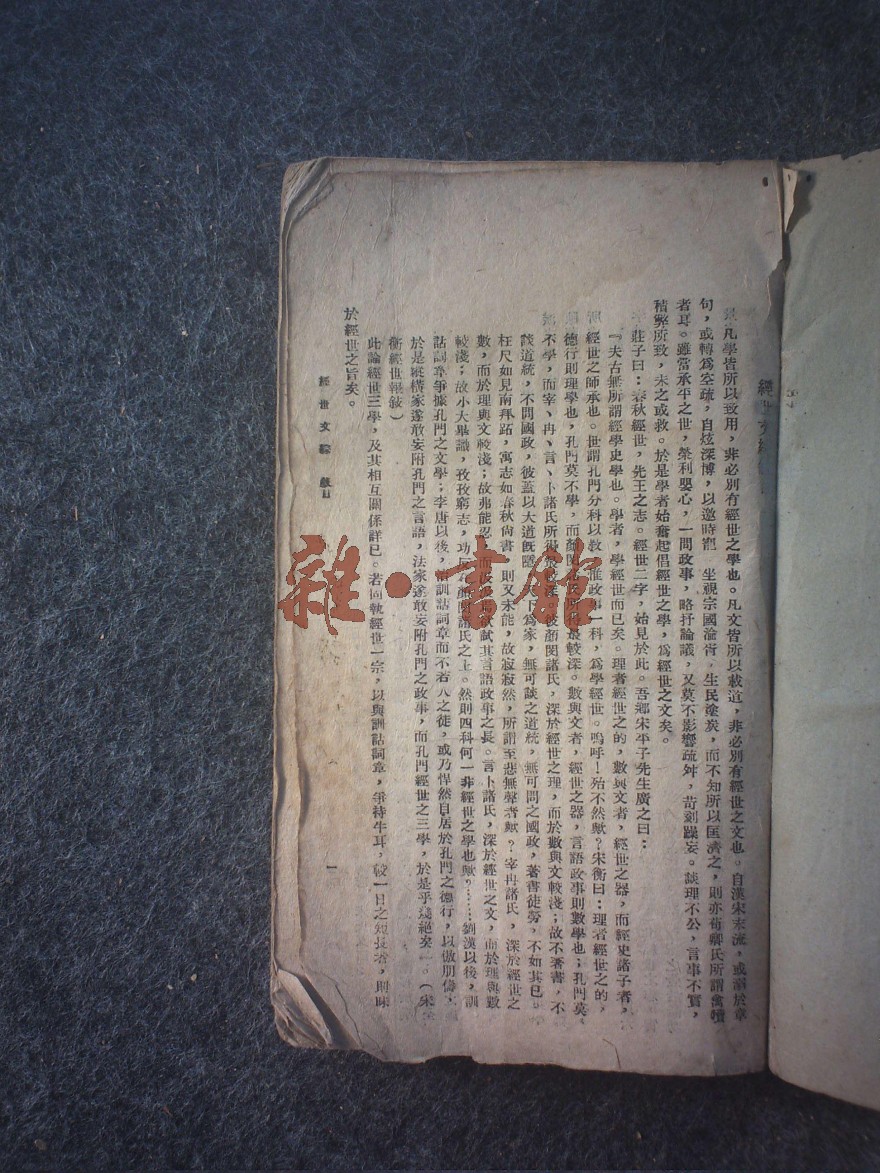 經世文綜
凡學皆所以致用，非必別有經世之學也。凡文皆所以載道，非必別有經世之文也。自漢宋末流，或溺於章
句，或轉爲空疏，自炫深博，以邀時 坐視宗國淪胥，生民塗炭，而不知所以匡濟之，則亦荀卿氏所謂禽犢
者耳。雖當承平之世，榮利嬰心，一問政事，略抒論議，又莫不影響疏舛，苛刻躁妄。談理不公，言事不實，
積弊所致，未之或救。於是學者始奮起倡經世之學，爲經世之文矣。
莊子曰：春秋經世，先王之志。經世二字，始見於此。吾鄉宋平子先生廣之曰：
「夫古無所謂經學史學也。學者，學經世而已矣。理者經世之的，數與文者，經世之器，而經史諸子者，
經世之師承也。世謂孔門分科以教，惟政事一科，爲學經世。嗚呼！殆不然歟？宋衡曰：理者經世之的，
德行則理學也，孔門莫不學，而顏閔 最較深。數與文者，經世之器，言語政事則數學也；孔門莫
不學，而宰、冉、言、卜諸氏所得最較深。彼顏閔諸氏，深於經世之理，而於數與文較淺；故不著書，不
談道統，不問國政，彼蓋以大道既隱，天下爲家，無可談之道統，無可問之國政，著書徒勞，不如其已。
枉尺如見南拜跖，寓志如春秋尙書 則又未能，故寂寂然，所謂至悲無聲者歟？宰冉諸氏，深於經世之
數，而於理與文較淺；故弗能忍 而 欲試其言語政事之長。言卜諸氏，深於經世之文，而於理與數
較淺；故小大畢識，孜孜窮志，功 顏閔諸氏之上。然則四科何一非經世之學也歟？……劉漢以後，訓
詁詞章爭據孔門之文學；李唐以後， 訓詁詞章而不若 之徒，或乃悍然自居於孔門之德行，以傲朋儔，
於是縱橫家遂敢妄附孔門之言語，法家遂敢妄附孔門之政事，而孔門經世之三學，於是乎殘絕矣」。（宋
衡經世報敍）
此論經世三學，及其相互關係詳已。若尙執經世一宗，以與訓詁詞章，爭持牛耳，較一日之短長者，則昧
於經世之旨矣。
經世文綜 敍目
一